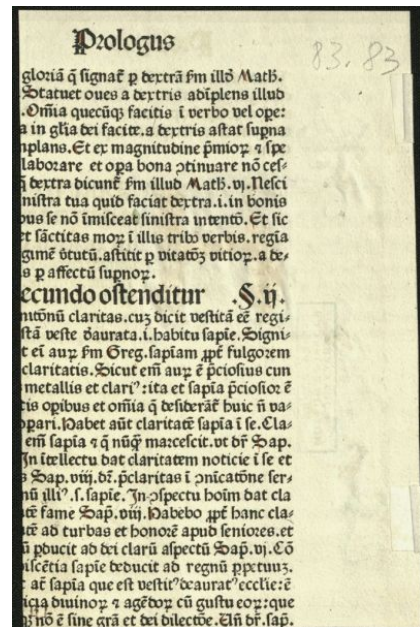 Prologus
83.83
gloriā q̄ signat̄ ꝑ dextrā ẜm illd̄ Math̄.
Statuet oues a dextris adīplens illud
. Om̄ia quecūqꝫ facitis ī verbo vel ope:
a in gl̄ia dei facite. a dextris astat sup̄na
mplans. Et ex magnitudine p̄mioꝝ ⁊ spe
laborare et oꝑa bona ꝯtinuare nō ces-
q̄ dextra dicunt̄ ẜm illud Math̄. vj. Nesci
nistra tua quid faciat dextra. i. in bonis
us se nō īmisceat sinistra intentō. Et sic
et sāctitas moꝝ ī illis tribꝰ verbis. regīa
gimē v̄tutū. astitit ꝑ vitatōꝫ vitioꝝ. a de-
s ꝑ affectū suꝑnoꝝ.
ecundo ostenditur .§. ij.
mitōnū claritas. cuꝫ dicit vestitā eē regi-
stā veste d̄aurata. i. habitu sapīe. Signi-
t eī auꝝ ẜm Greg. sapīam ꝓpt̄ fulgorem
claritatis. Sicut em̄ auꝝ ē p̄ciosius cun
metallis et clariꝰ: ita et sapīa p̄ciosior ē
tis opibus et om̄ia q̄ desiderāt̄ huic n̄ va-
ꝯpari. Habet aūt claritatē sapīa ī se. Cla-
em̄ sapīa ⁊ q̄ nūq̄ꝫ marcescit. vt dr̄ Sap.
In ītellectu dat claritatem noticie ī se et
s Sap. viij. dr̄. p̄claritas ī ꝯmūicatōne ser-
nū illiꝰ. s. sapīe. In ꝯspectu hoīm dat cla
atē fame Sap̄. viij. Habebo ꝓpt̄ hanc cla-
tē ad turbas et honorē apud seniores. et
ū ꝑducit ad dei clarū aspectū Sap̄. vj. Cō
iscētia sapīe deducit ad regnū ꝑpetuuꝫ.
t at̄ sapīa que est vestitꝰ deauratꝰ ecclīe: ē
icia diuinoꝝ ⁊ agēdoꝝ cū gustu eoꝝ: que
qꝫ nō ē sine grā et dei dilectōe. Un̄ dr̄. sap̄.